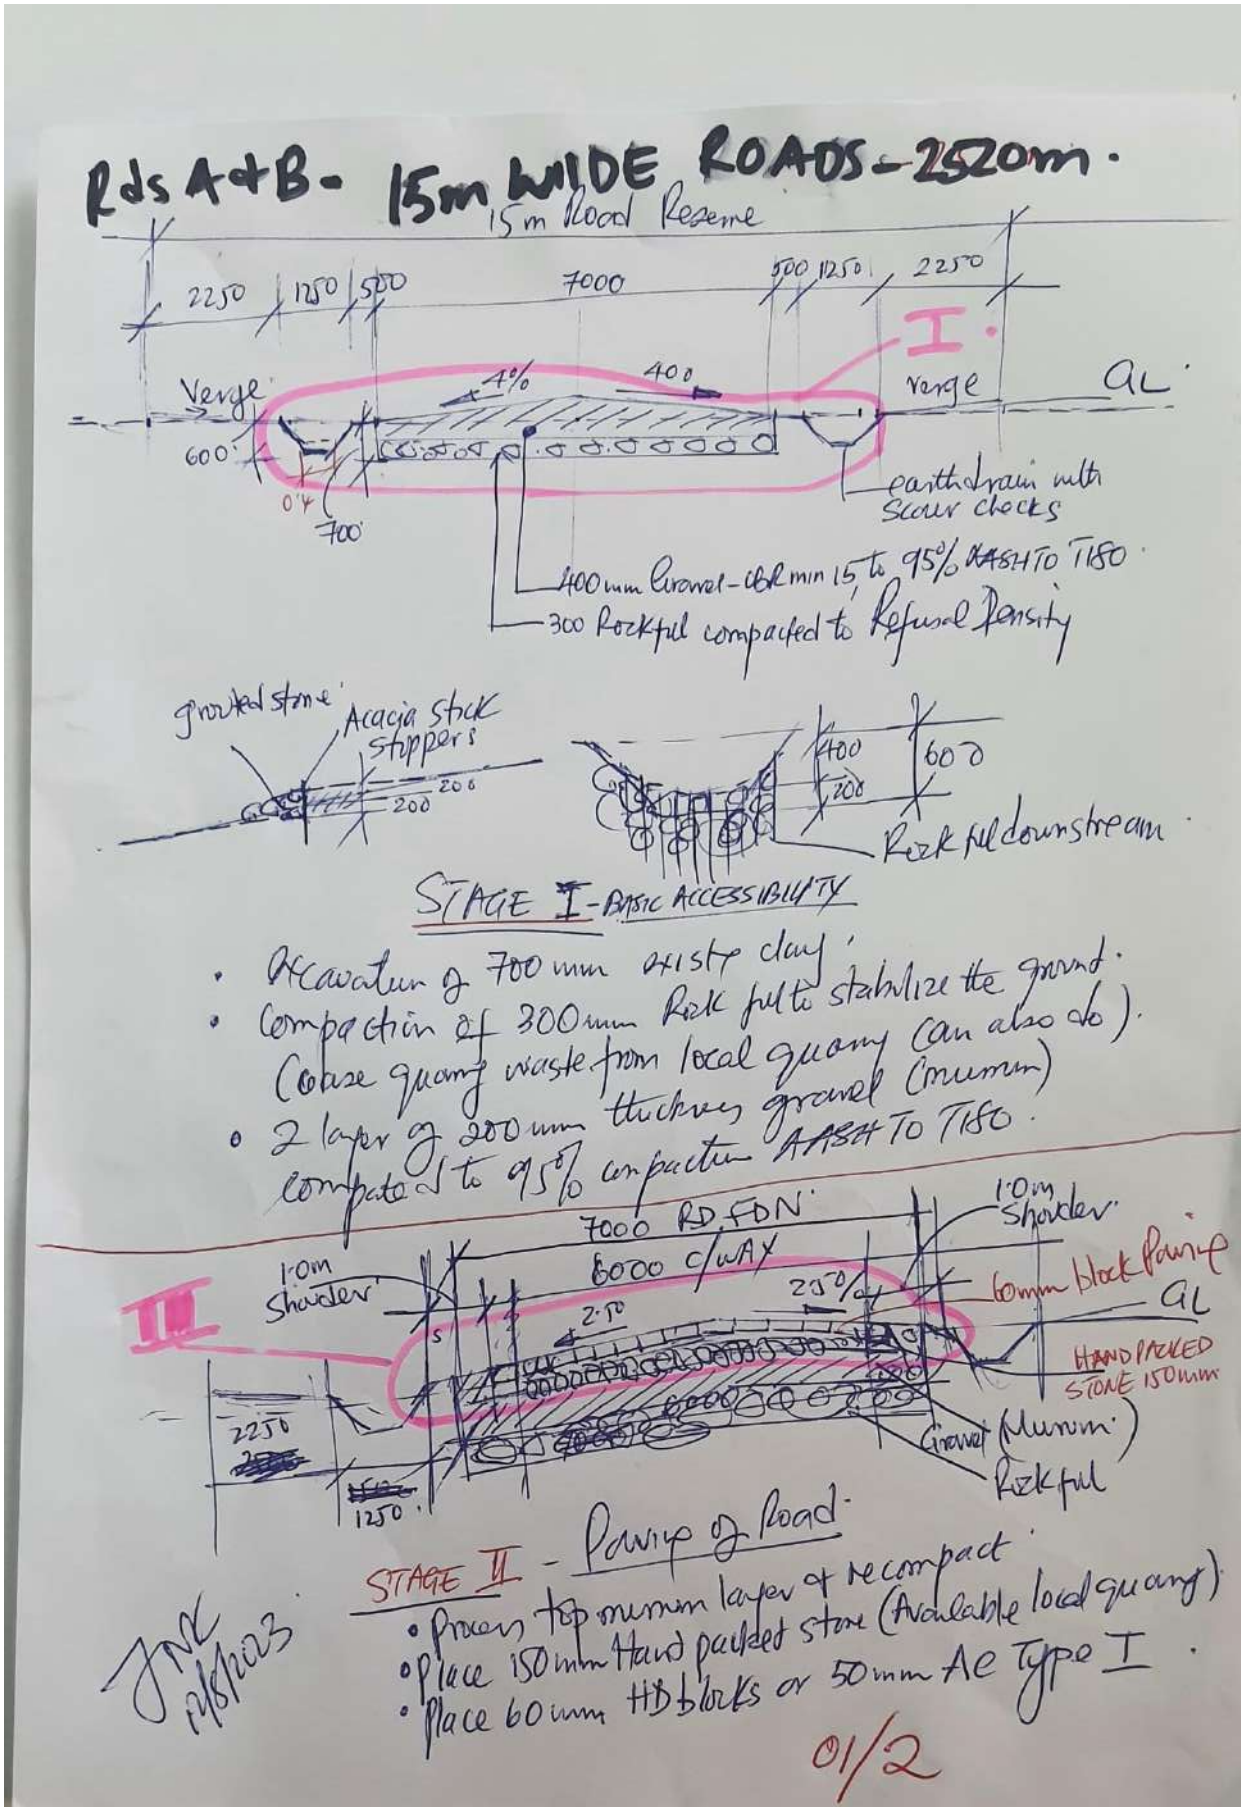 Rds A & B - 15m WIDE ROADS - 2520m.
15m Road Reserve
2250 1250 500 7000 500 1250 2250
I.
4% 400
Verge verge GL
600
0.4
700
earth drain with
scour checks
400mm Gravel - CBR min 15, to 95% AASHTO T180.
300 Rockfill compacted to Refusal Density
grouted stone
Acacia stick
stoppers
200
200
400
600
200
Rockfill downstream
STAGE I - BASIC ACCESSIBILITY
• Excavation of 700mm existg clay
• Compaction of 300mm Rock fill to stabilize the ground.
(coarse quarry waste from local quarry can also do).
• 2 layer of 200mm thickness gravel (murrum)
compacted to 95% compaction AASHTO T180.
7000 RD. FDN.
1.0m
Shoulder.
6000 C/WAY
1.0m
Shoulder
II
2.50 250%
60mm block Paving
GL
HAND PACKED
STONE 150mm
2250
1250
Gravel (Murrum)
Rockfill
STAGE II - Paving of Road.
• Process top murrum layer & recompact
• Place 150mm Hand packed stone (Available local quarry)
• Place 60mm HD blocks or 50mm AC Type I.
JNK
01/2